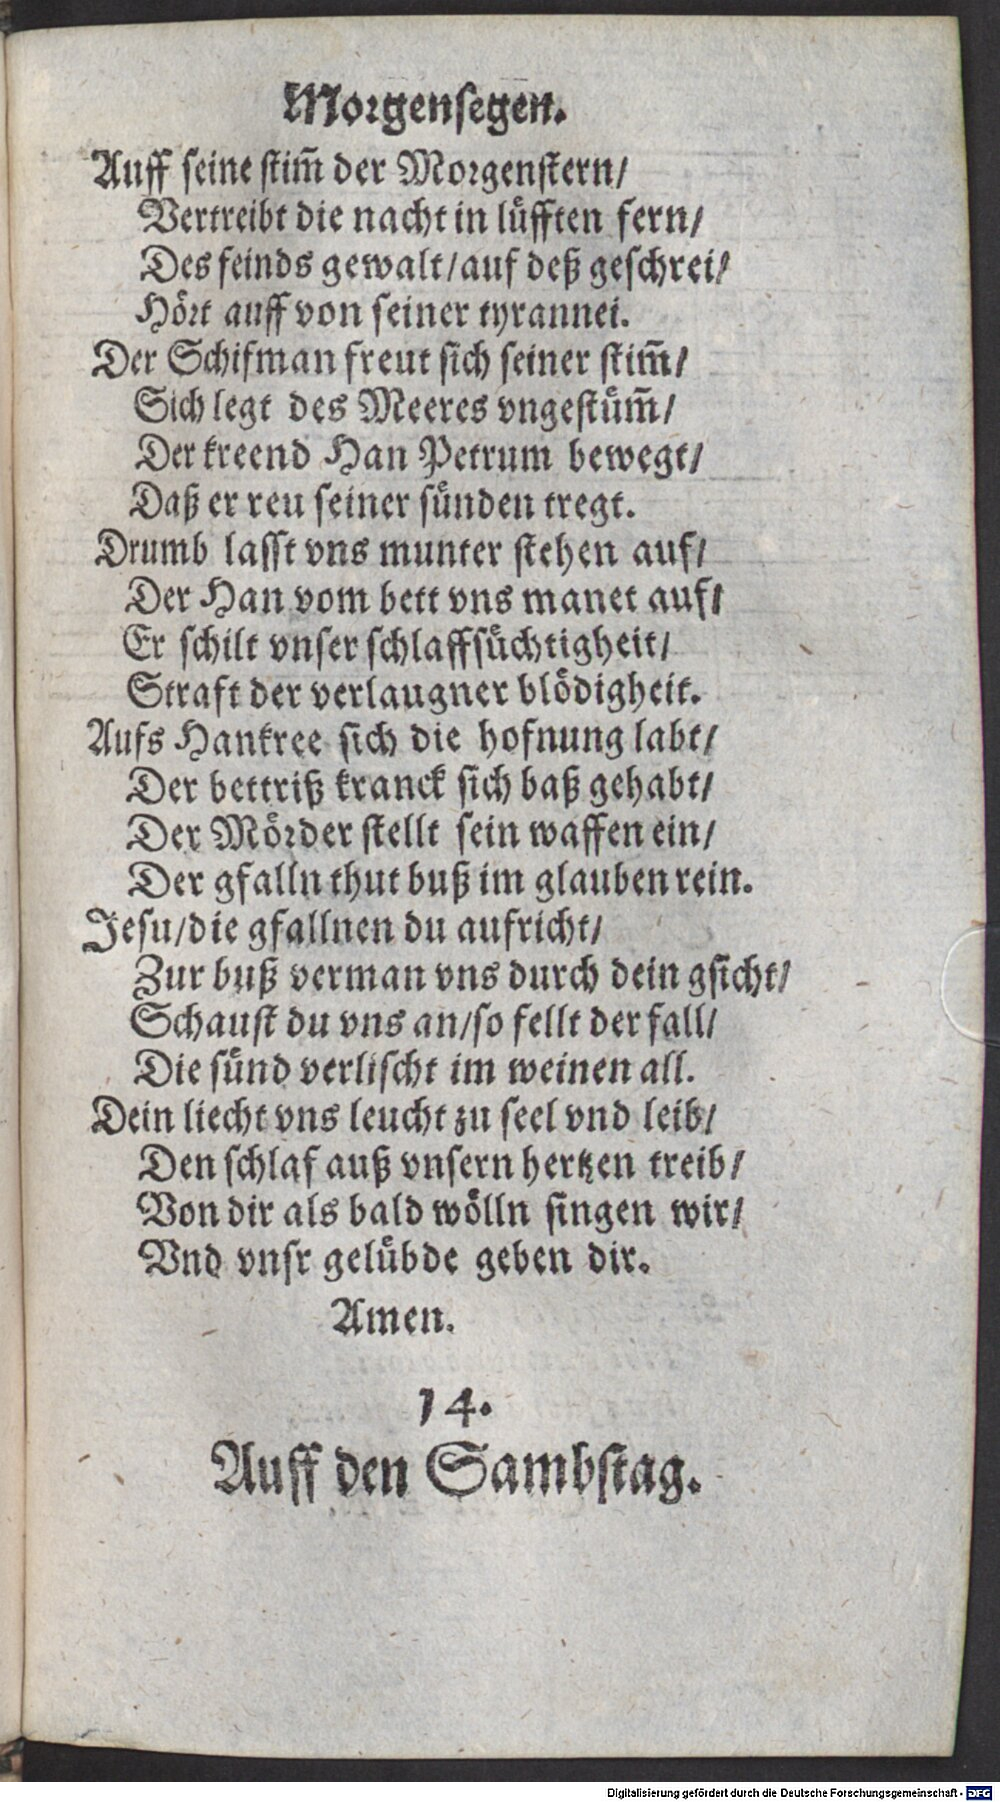 Morgensegen.
Auff seine stim̃ der Morgenstern/
Vertreibt die nacht in lüfften fern/
Des feinds gewalt/auf deß geschrei/
Hört auff von seiner tyrannei.
Der Schifman freut sich seiner stim̃/
Sich legt des Meeres vngestüm̃/
Der kreend Han Petrum bewegt/
Daß er reu seiner sünden tregt.
Drumb lasst vns munter stehen auf/
Der Han vom bett vns manet auf/
Er schilt vnser schlaffsüchtigheit/
Straft der verlaugner blödigheit.
Aufs Hankree sich die hofnung labt/
Der bettriß kranck sich baß gehabt/
Der Mörder stellt sein waffen ein/
Der gfalln thut buß im glauben rein.
Jesu/die gfallnen du aufricht/
Zur buß verman vns durch dein gsicht/
Schaust du vns an/so fellt der fall/
Die sünd verlischt im weinen all.
Dein liecht vns leucht zu seel vnd leib/
Den schlaf auß vnsern hertzen treib/
Von dir als bald wölln singen wir/
Vnd vnsr gelübde geben dir.
Amen.
14.
Auff den Sambstag.
Digitalisierung gefördert durch die Deutsche Forschungsgemeinschaft - DFG